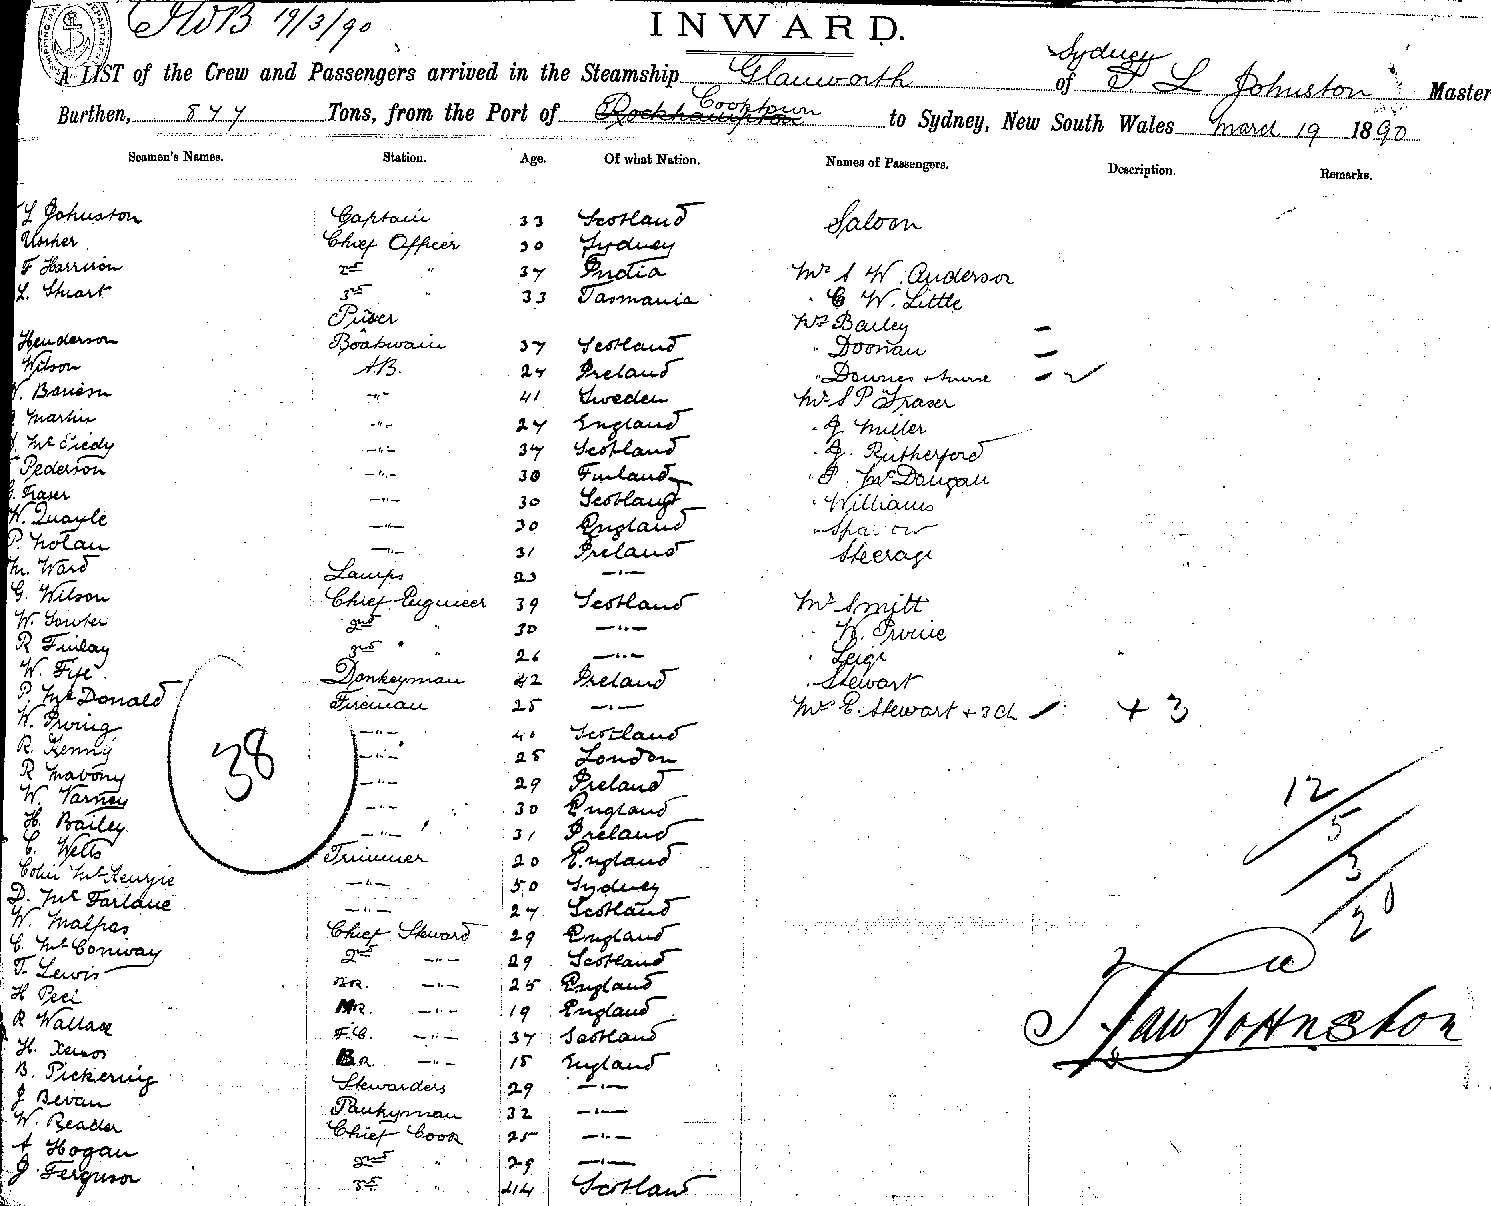 JWB 19/3/90
INWARD.
A LIST of the Crew and Passengers arrived in the Steamship Glanworth of Sydney T L Johnston Master
Burthen, 877 Tons, from the Port of Rockhampton Cooktown to Sydney, New South Wales March 19 1890
Seamen's Names. Station. Age. Of what Nation. Names of Passengers. Description. Remarks.
L Johnston Captain 33 Scotland Saloon
Usher Chief Officer 30 Sydney
F Harrison 2nd " 37 India Mr S W. Anderson
L. Stuart 3rd " 33 Tasmania " C W. Little
Purser Mrs Bailey –
Henderson Boatswain 37 Scotland " Doonan –
Wilson AB. 27 Ireland " Downes + nurse –
41 Sweden Mr S P Fraser
Martin " 27 England " J Miller
" 37 Scotland " J. Rutherford
Pederson " 30 Finland " P. McDougall
Fraser " 30 Scotland " Williams
W. Quayle " 30 England
P. Nolan " 31 Ireland Steerage
M. Ward Lamps 23 "
G. Wilson Chief Engineer 39 Scotland Mr Smith
W. Souter 2nd " 30 " " W. Irvine
R Finlay 3rd " 26 " "
W. Fife Donkeyman 42 Ireland " Stewart
P. McDonald Fireman 25 " Mrs E. Stewart + 3 Ch + 3
W. Irving " 40 Scotland
R. Kenny " 25 London
R Mahony " 29 Ireland
W. Varney " 30 England
H. Bailey " 31 Ireland
C. Wells Trimmer 20 England
Colin McKenzie " 50 Sydney
D. McFarlane " 27 Scotland
W. Malpas Chief Steward 29 England
C. McConway 2nd " 29 Scotland
T. Lewis " 25 England
H Peel " 19 England
R Wallace F.C. " 37 Scotland
H. " 18 England
B. Pickering Stewardess 29 "
J Bevan Pantryman 32 "
W. Reader Chief Cook 25 "
A Hogan 2nd " 29 "
J. Ferguson 3rd " 44 Scotland
38
12
5
3
20
T. Law Johnston